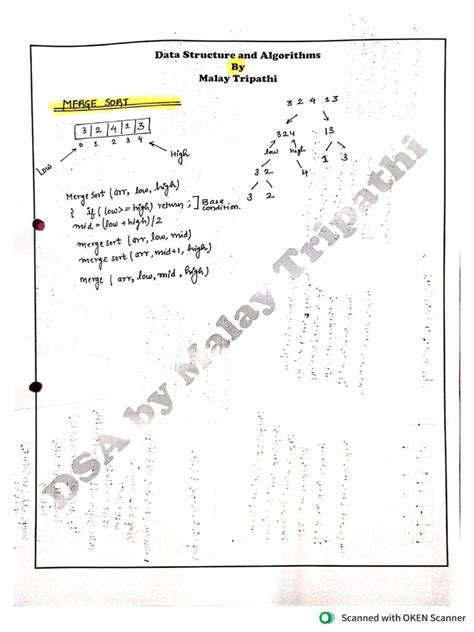 Data Structure and Algorithms
By
Malay Tripathi
MERGE SORT
3 2 4 1 3
0 1 2 3 4
Low
High
3 2 4 1 3
3 2 4
1 3
low high
3 2
4
1 3
3 2
Merge sort (arr, low, high)
{ if (low >= high) return ; ] Base condition.
mid = (low + high)/2
merge sort (arr, low, mid)
merge sort (arr, mid+1, high)
merge (arr, low, mid, high)
DSA by Malay Tripathi
Scanned with OKEN Scanner